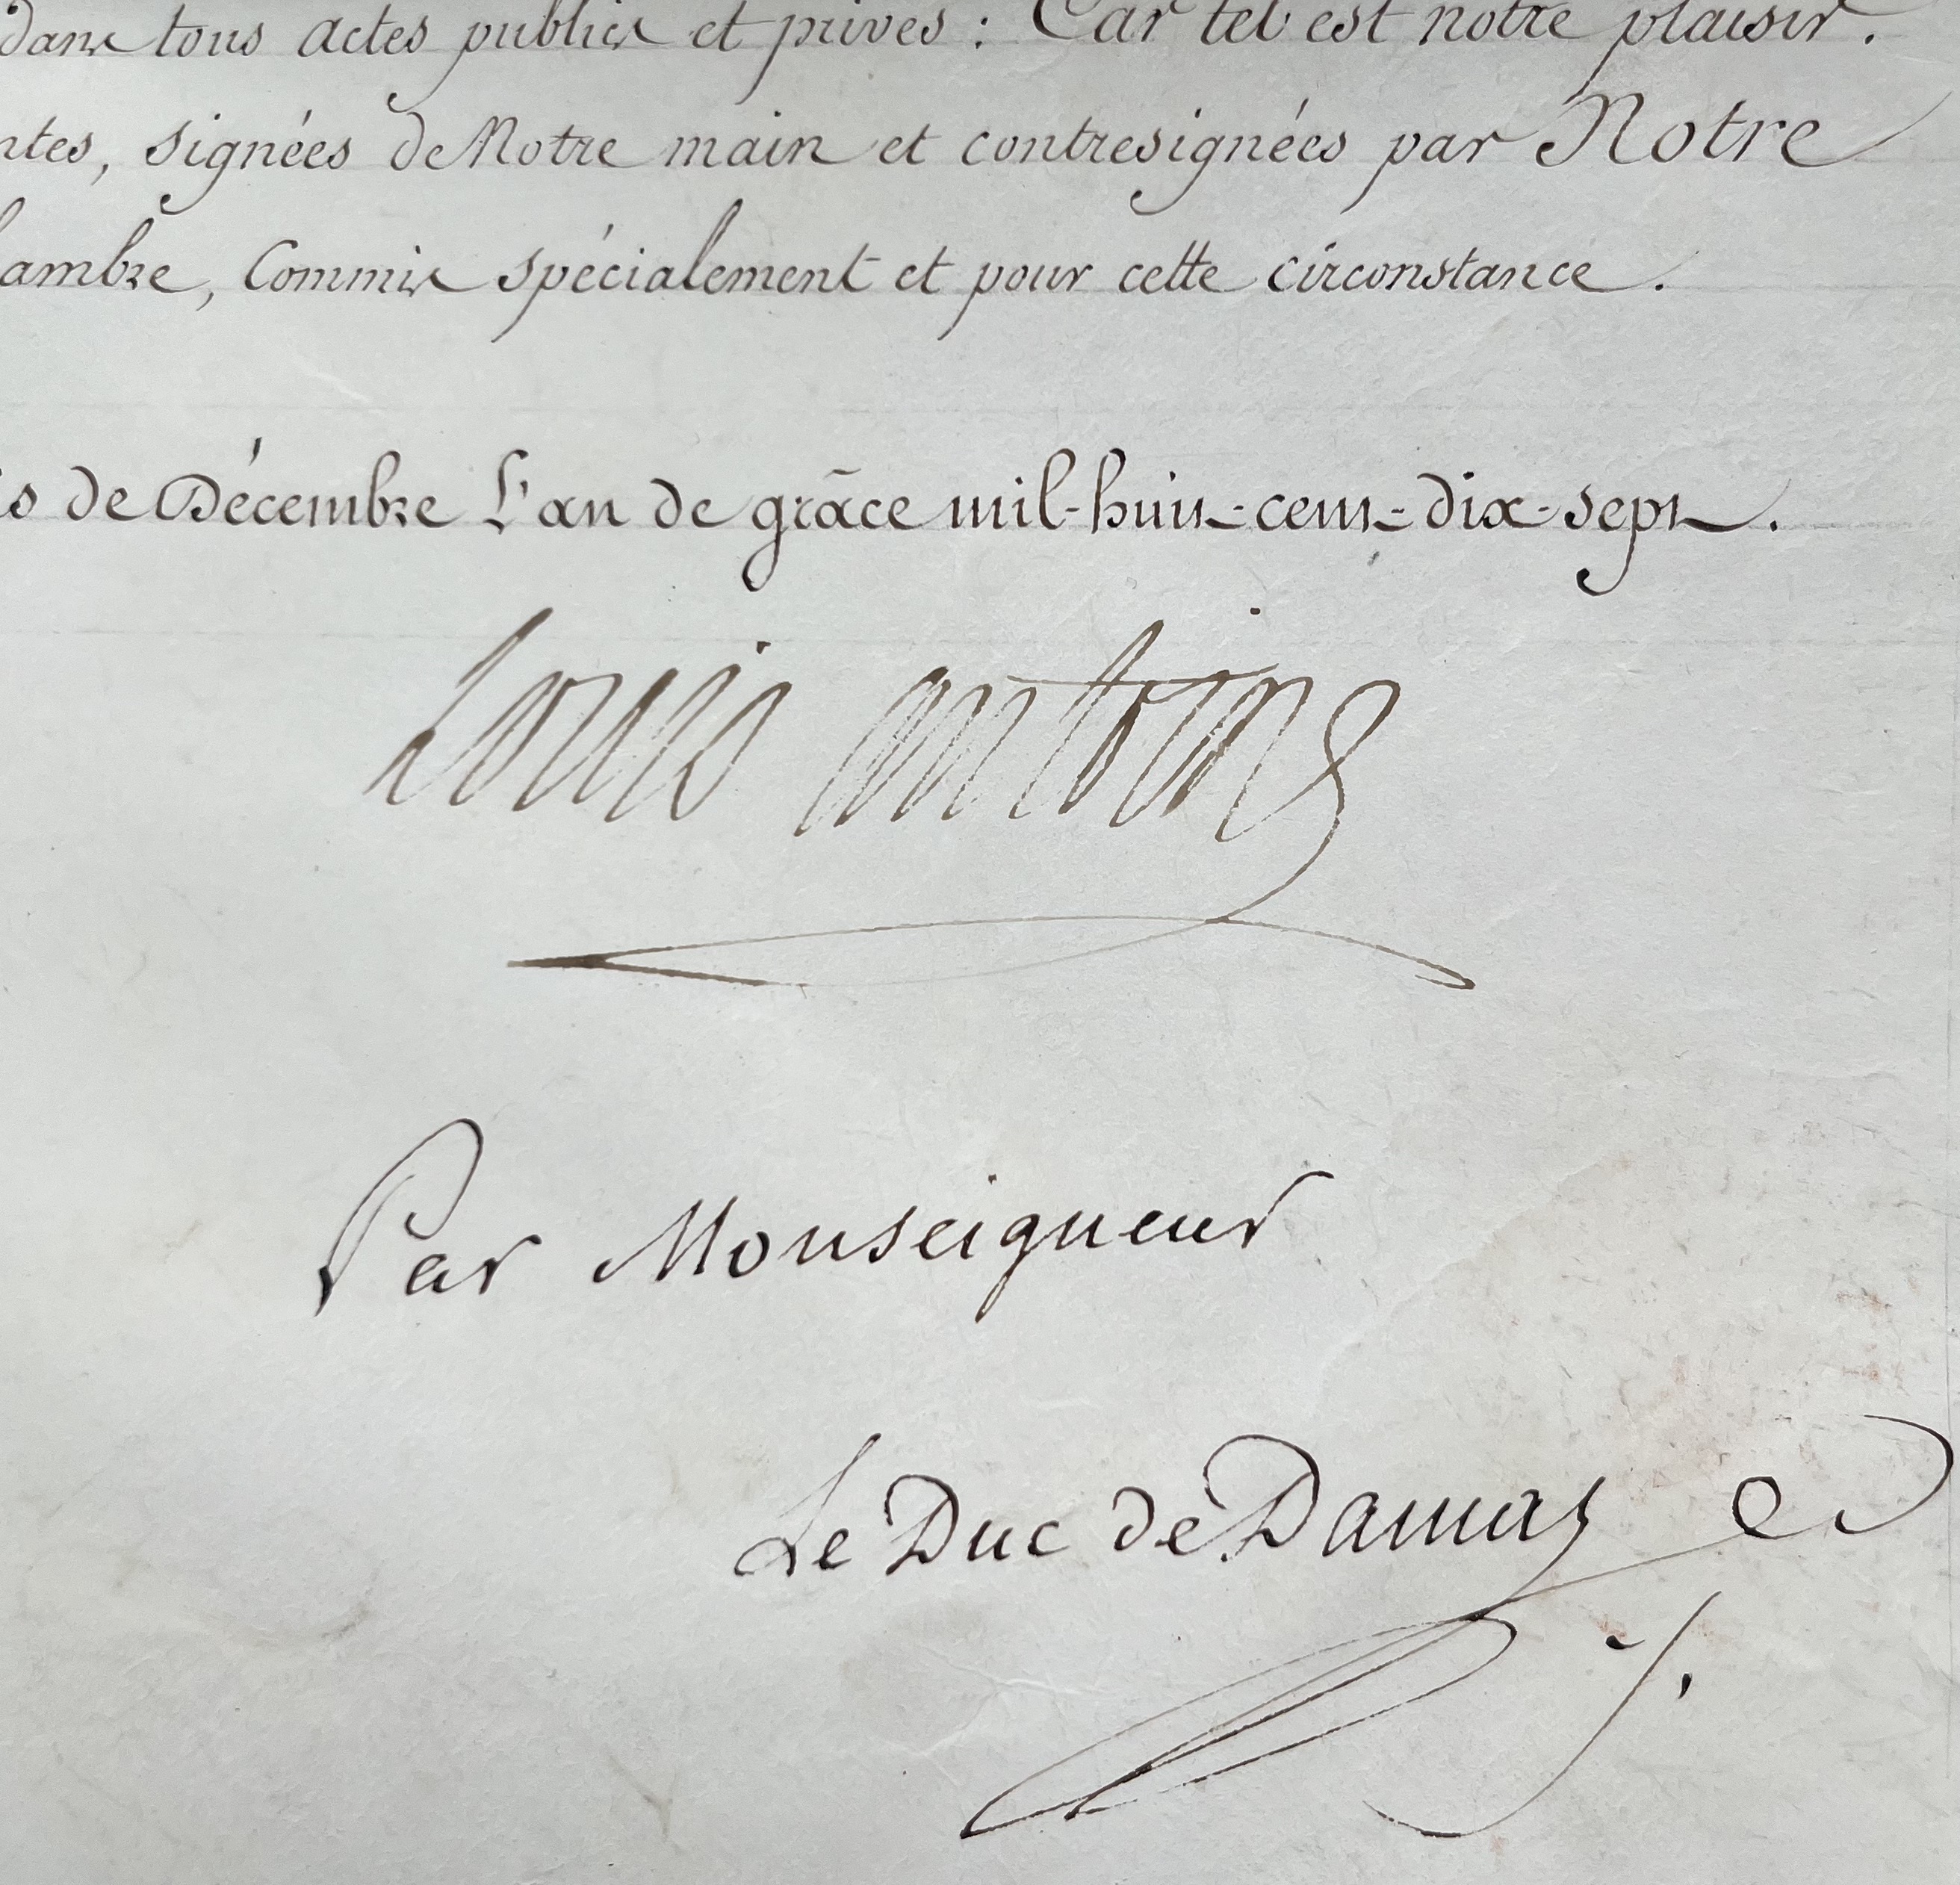 dans tous actes publics et privés : Car tel est notre plaisir.
ntes, signées de Notre main et contresignées par Notre
ambre, Commis spécialement et pour cette circonstance.
is de Décembre L'an de grâce mil-huit-cent-dix-sept.
Louis antoine
Par Monseigneur
Le Duc de Damas